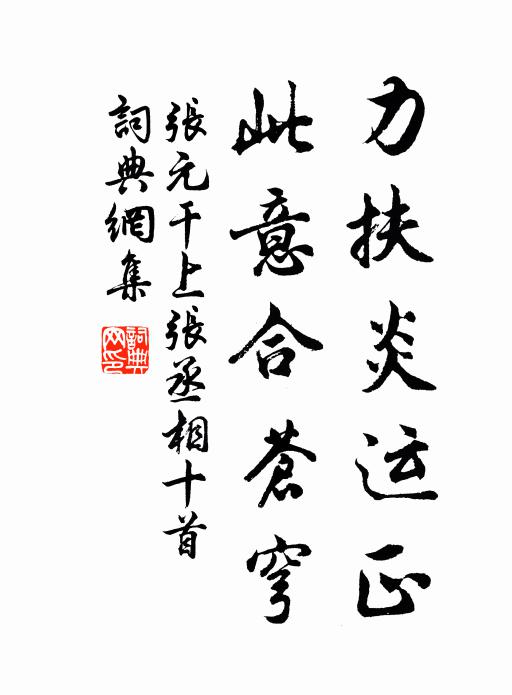 力扶炎运正
此意合蒼穹
張元干上張丞相十首
詞典網集
詞典網印